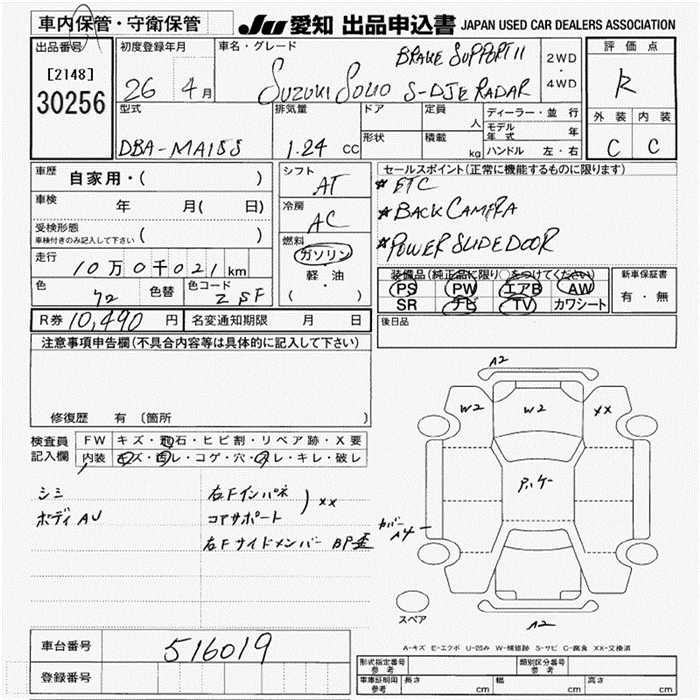 車内保管・守衛保管
JU 愛知 出品申込書 JAPAN USED CAR DEALERS ASSOCIATION
出品番号
[2148]
30256
初度登録年月
26 年 4 月
車名・グレード
BRAKE SUPPORT II
SUZUKI SOLIO S-DJE RADAR
2WD
・
4WD
評価点
R
外装 内装
C C
型式
DBA-MA15S
排気量
1.24 cc
ドア
形状
定員
人
積載
kg
ディーラー・並行
モデル年式 年
ハンドル 左・右
車歴 自家用・( )
車検 年 月( 日)
受検形態
車検付きのみ記入して下さい ( )
走行 10万0千021 km
色 色替 色コード ZSF
シフト
AT
冷房
AC
燃料
ガソリン
軽・油
( )
セールスポイント(正常に機能するものに限ります)
* ETC
* BACK CAMERA
* POWER SLIDE DOOR
装備品(純正品に限り○をつけてください)
PS PW エアB AW
SR ナビ TV カワシート
新車保証書
有・無
R券 10,490 円 名変通知期限 月 日
後日品
注意事項申告欄(不具合内容等は具体的に記入して下さい)
修復歴 有 (箇所 )
検査員
記入欄
FW キズ・飛石・ヒビ割・リペア跡・X要
内装 キズ・汚レ・コゲ・穴・スレ・キレ・破レ
シミ
ボディAU
右Fインパネ
コアサポート
) XX
右Fサイドメンバー BP歪
A2
W2 W2 XX
カバー
A4
A2
スペア
A-キズ E-エクボ U-凹み W-補修跡 S-サビ C-腐食 XX-交換済
車台番号 516019
登録番号
形式指定番号
参考
類別区分番号
参考
車庫証明用
参考
長さ cm 幅 cm 高さ cm